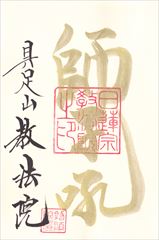 師子吼
日蓮宗
具足山教法院